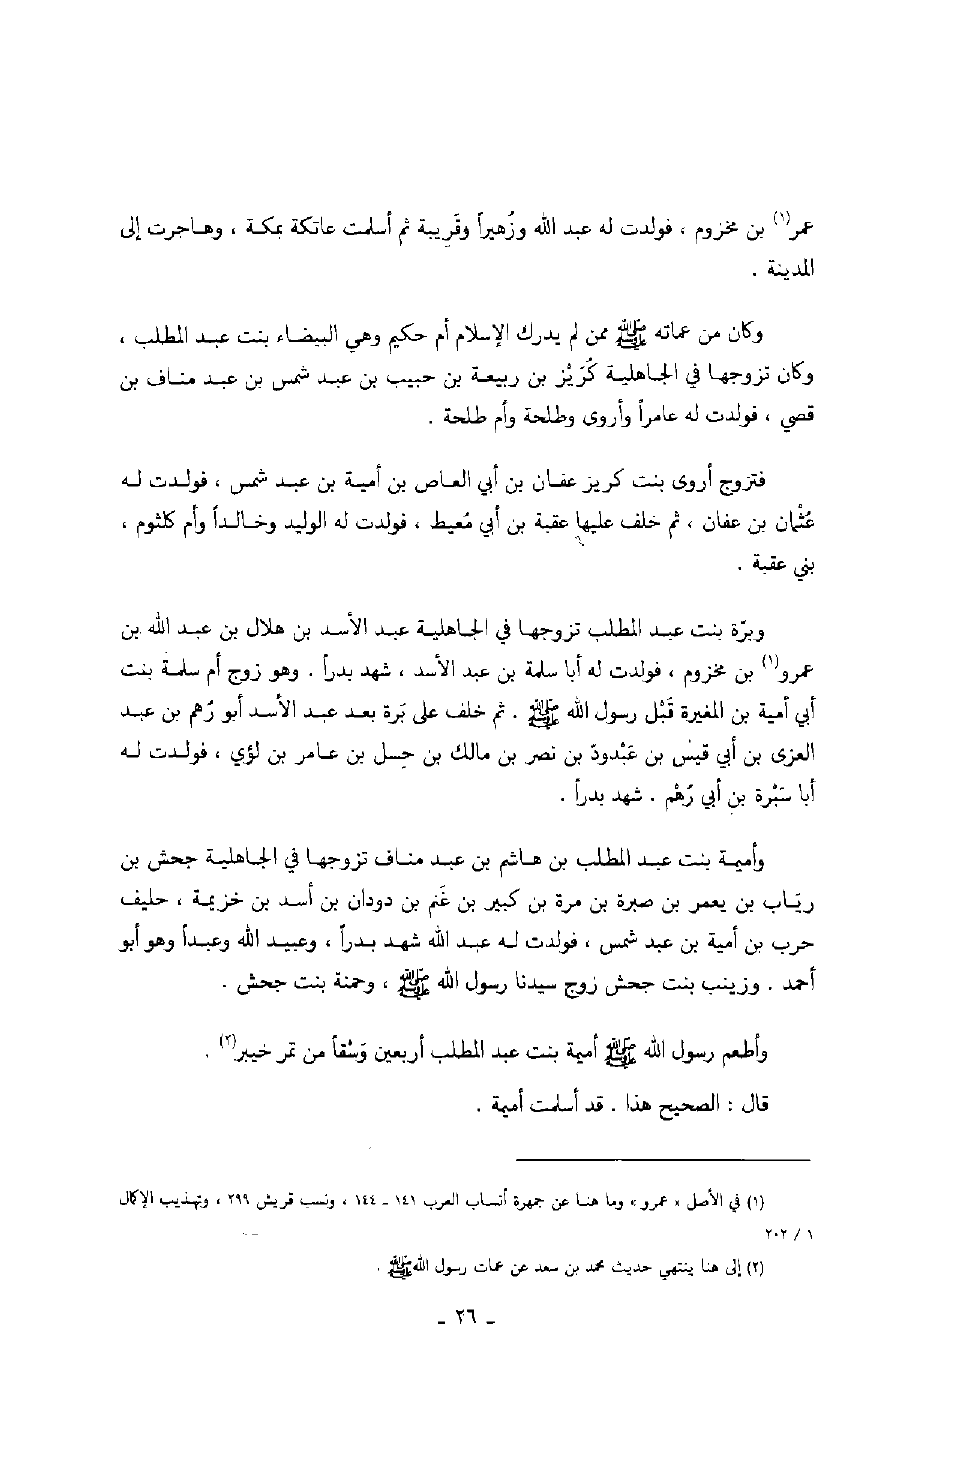 عمر(١) بن مخزوم ، فولدت له عبد الله وزُهيراً وقَريبة ثم أسلمت عاتكة بمكة ، وهاجرت إلى
المدينة .
وكان من عماته ﷺ ممن لم يدرك الإسلام أم حكيم وهي البيضاء بنت عبد المطلب ،
وكان تزوجها في الجاهلية كُرَيْز بن ربيعة بن حبيب بن عبد شمس بن عبد مناف بن
قصي ، فولدت له عامراً وأروى وطلحة وأم طلحة .
فتزوج أروى بنت كريز عفان بن أبي العاص بن أمية بن عبد شمس ، فولدت له
عُثْمان بن عفان ، ثم خلف عليها عقبة بن أبي مُعيط ، فولدت له الوليد وخالداً وأم كلثوم ،
بني عقبة .
وبرّة بنت عبد المطلب تزوجها في الجاهلية عبد الأسد بن هلال بن عبد الله بن
عمرو(١) بن مخزوم ، فولدت له أبا سلمة بن عبد الأسد ، شهد بدراً . وهو زوج أم سلمة بنت
أبي أمية بن المغيرة قَبْل رسول الله ﷺ . ثم خلف على بَرة بعد عبد الأسد أبو رُهم بن عبد
العزى بن أبي قيْس بن عَبْدودّ بن نصر بن مالك بن حِسل بن عامر بن لؤي ، فولدت له
أبا سَبْرة بن أبي رُهْم . شهد بدراً .
وأميمة بنت عبد المطلب بن هاشم بن عبد مناف تزوجها في الجاهلية جحش بن
ريّاب بن يعمر بن صبرة بن مرة بن كبير بن غَنم بن دودان بن أسد بن خزيمة ، حليف
حرب بن أمية بن عبد شمس ، فولدت له عبد الله شهد بدراً ، وعبيد الله وعبداً وهو أبو
أحمد . وزينب بنت جحش زوج سيدنا رسول الله ﷺ ، وحمنة بنت جحش .
وأطعم رسول الله ﷺ أميمة بنت عبد المطلب أربعين وَسْقاً من تمر خيبر(٢) .
قال : الصحيح هذا . قد أسلمت أميمة .
(١) في الأصل « عمرو » وما هنا عن جمهرة أنساب العرب ١٤١ ـ ١٤٤ ، ونسب قريش ٢٩٩ ، وتهذيب الإكمال
١ / ٢٠٢
(٢) إلى هنا ينتهي حديث محمد بن سعد عن عمات رسول الله ﷺ .
ـ ٢٦ ـ